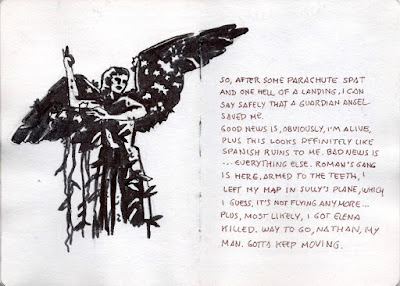 SO, AFTER SOME PARACHUTE SPAT
AND ONE HELL OF A LANDING, I CAN
SAY SAFELY THAT A GUARDIAN ANGEL
SAVED ME.
GOOD NEWS IS, OBVIOUSLY, I'M ALIVE,
PLUS THIS LOOKS DEFINITELY LIKE
SPANISH RUINS TO ME. BAD NEWS IS
... EVERYTHING ELSE. ROMAN'S GANG
IS HERE, ARMED TO THE TEETH, I
LEFT MY MAP IN SULLY'S PLANE, WHICH
I GUESS, IT'S NOT FLYING ANYMORE...
PLUS, MOST LIKELY, I GOT ELENA
KILLED. WAY TO GO, NATHAN, MY
MAN. GOTTA KEEP MOVING.